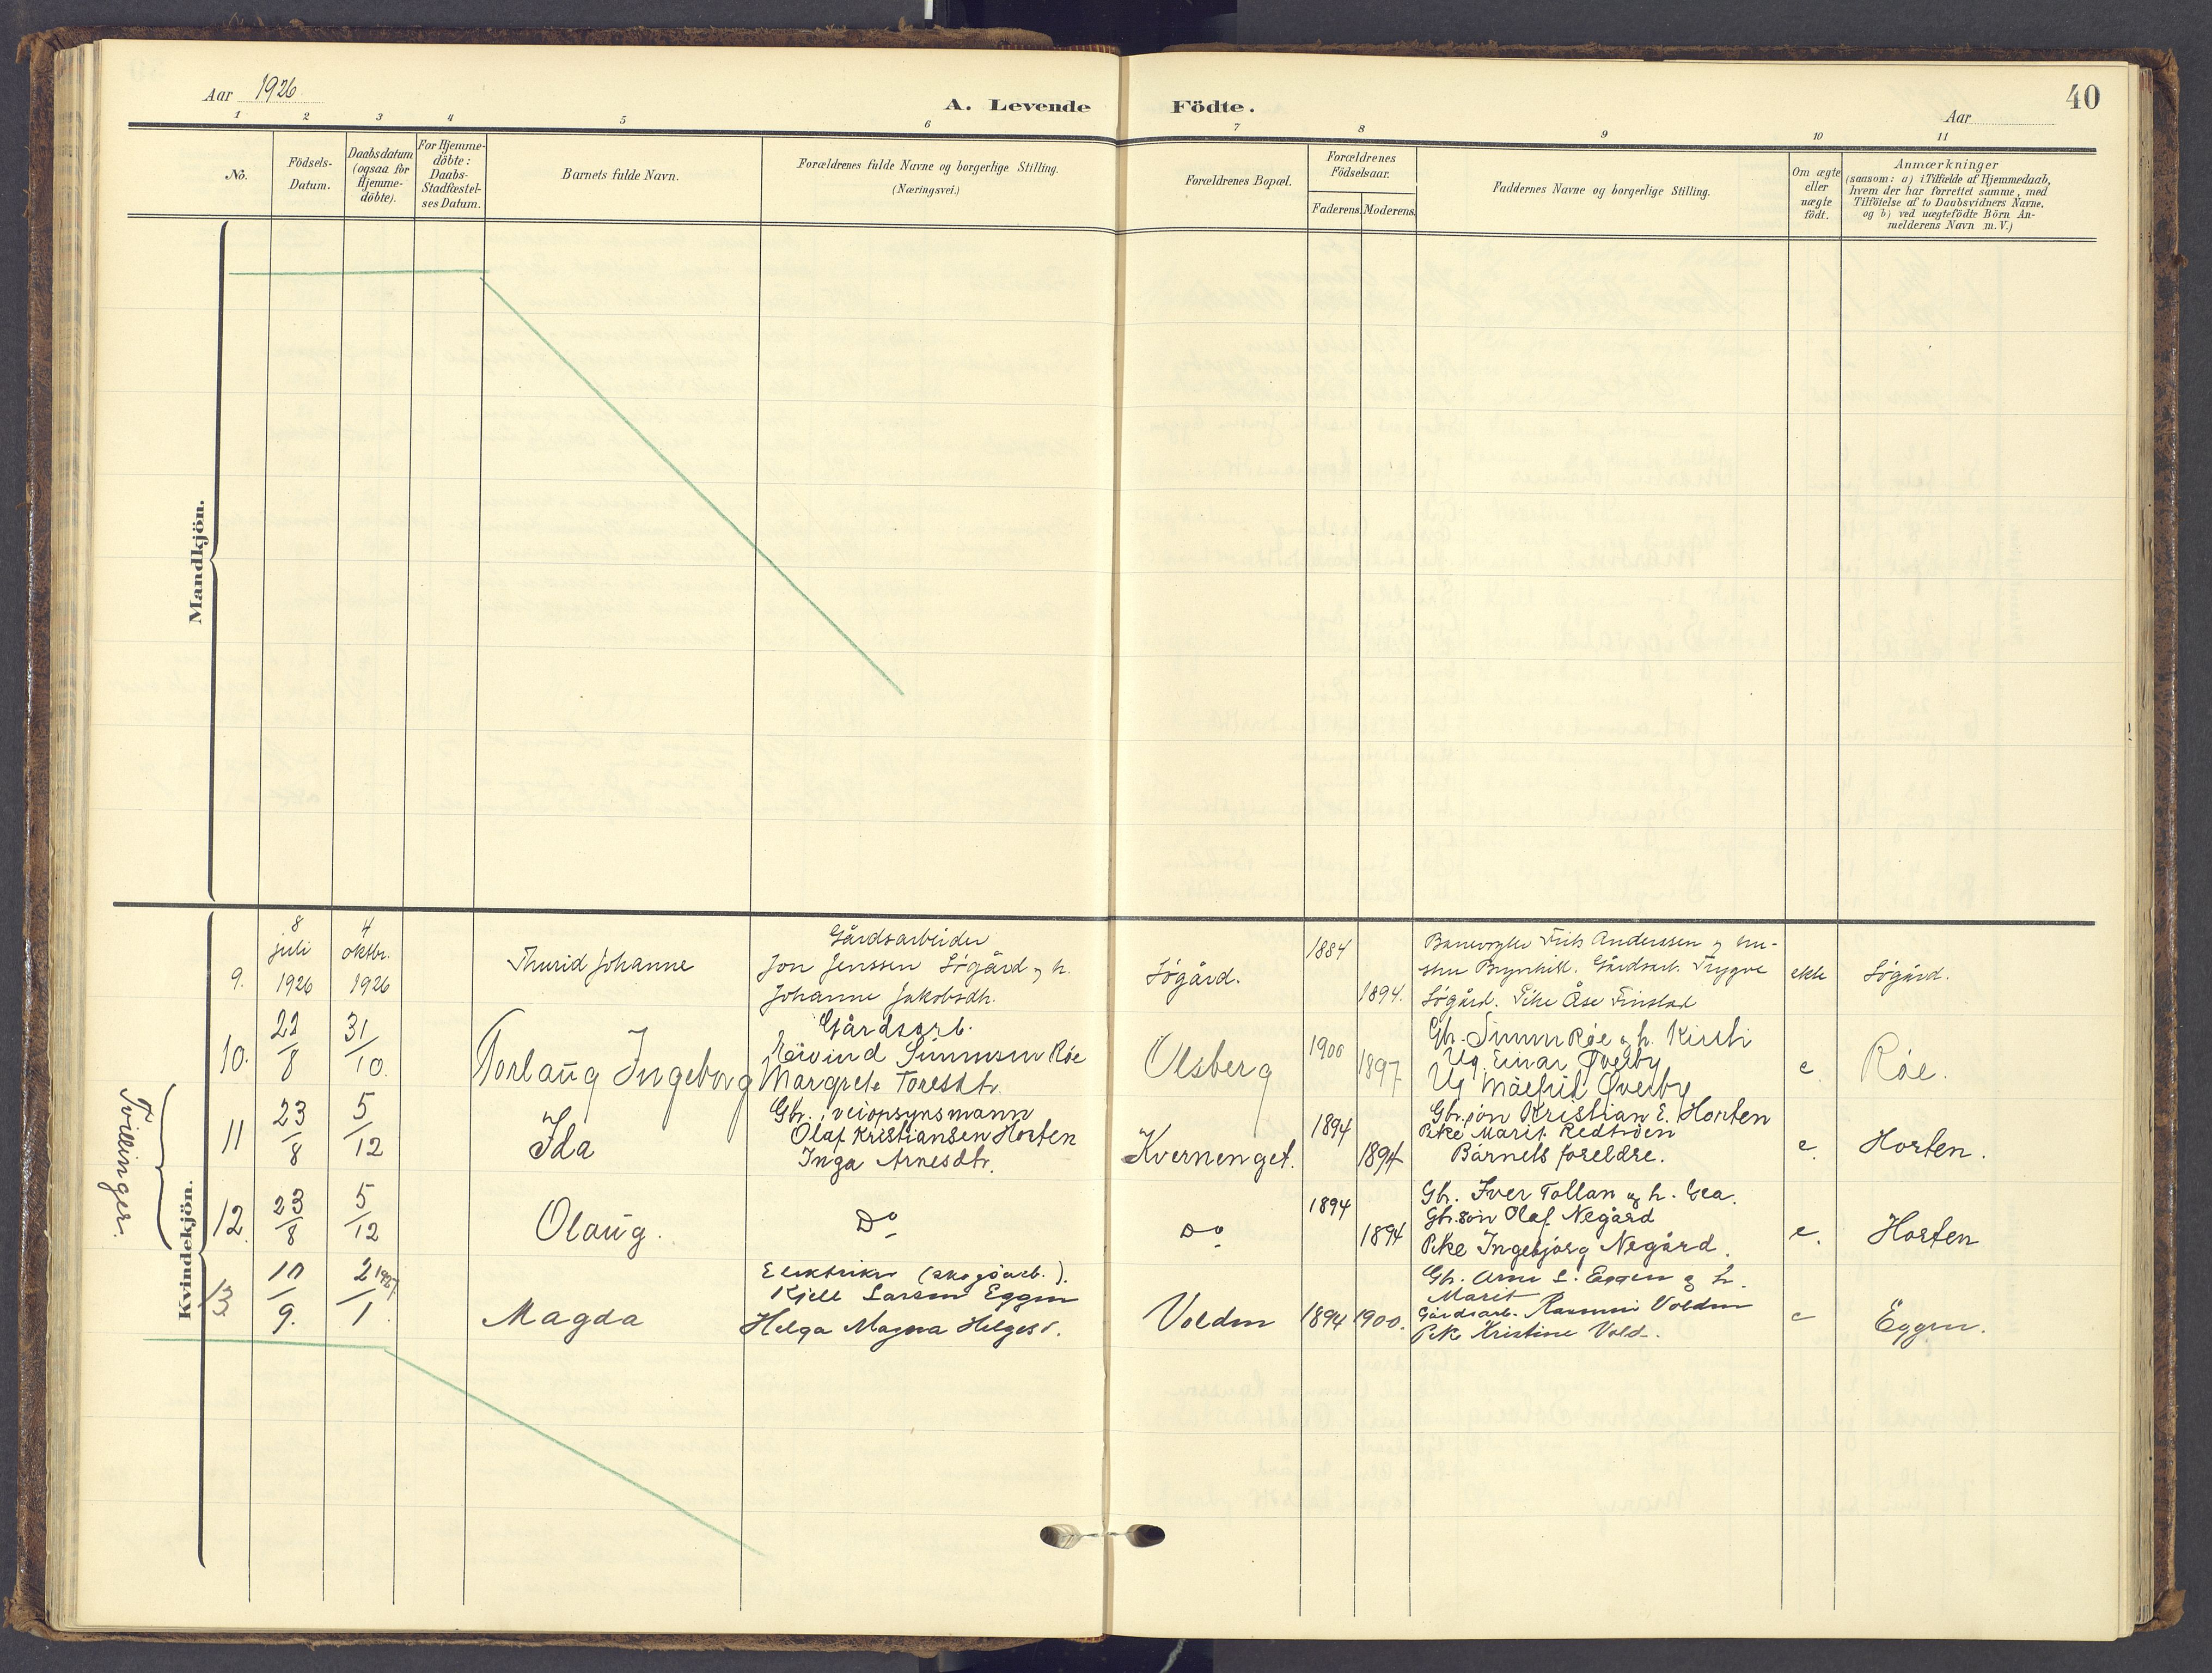 Aar 1926
A. Levende Födte.
Aar
40
1 2 3 4 5 6 7 8 9 10 11
No.
Födsels-
Datum.
Daabsdatum
(ogsaa for
Hjemme-
döbte).
For Hjemme-
döbte:
Daabs-
Stadfæstel-
ses Datum.
Barnets fulde Navn.
Forældrenes fulde Navne og borgerlige Stilling.
(Næringsvei.)
Forældrenes Bopæl.
Forældrenes
Födselsaar.
Faderens. Moderens.
Faddernes Navne og borgerlige Stilling.
Om ægte
eller
uægte
födt.
Anmærkninger
(saasom: a) i Tilfælde af Hjemmedaab,
hvem der har forrettet samme, med
Tilföielse af to Daabsvidners Navne.
og b) ved uægtefödte Börn An-
melderens Navn m. V.)
Mandkjön.
Kvindekjön.
Tvillinger.
9.
8
juli
1926
4
oktbr.
1926
Thurid Johanne
Gårdsarbeider
Jon Jenssen Sögård og h.
Johanne Jakobsdtr.
Sögård.
1884
1894.
Banevogter Frits Anderssen og hu-
stru Brynhild. Gårdsarb. Trygve
Sögård. Pike Åse Finstad
ekte
Sögård.
10.
22/8
31/10.
Torlaug Ingeborg
Gårdsarb.
Eivind Simensen Röe
Margrete Toresdtr.
Olsberg
1900
1897
Gbr. Simen Röe og h. Kirsti
Ug. Einar Øverby
Ug Målfrid Øverby
e
Röe.
11
23/8
5/12
Ida
Gbr. i veiopsynsmann
Olaf Kristiansen Horten
Inga Arnesdtr.
Kvernenget.
1894
1894
Gbr.søn Kristian E. Horten
Pike Marit Redtröen
Barnets foreldre.
e.
Horten.
12.
23/8
5/12
Olaug.
Do
Do
1894
1894
Gbr. Iver Tollan og h. Gea.
Gbr.søn Olaf Negård
Pike Ingebjørg Negård.
e.
Horten
13
10/9.
2/1 1927
Magda
Elektriker (skogsarb.).
Kjell Larsen Eggen
Helga Magna Helgesd.
Volden
1894
1900.
Gbr. Arne L. Eggen og h.
Marit
Gårdsarb. Volden
Pike Kristine Vold.
e
Eggen.